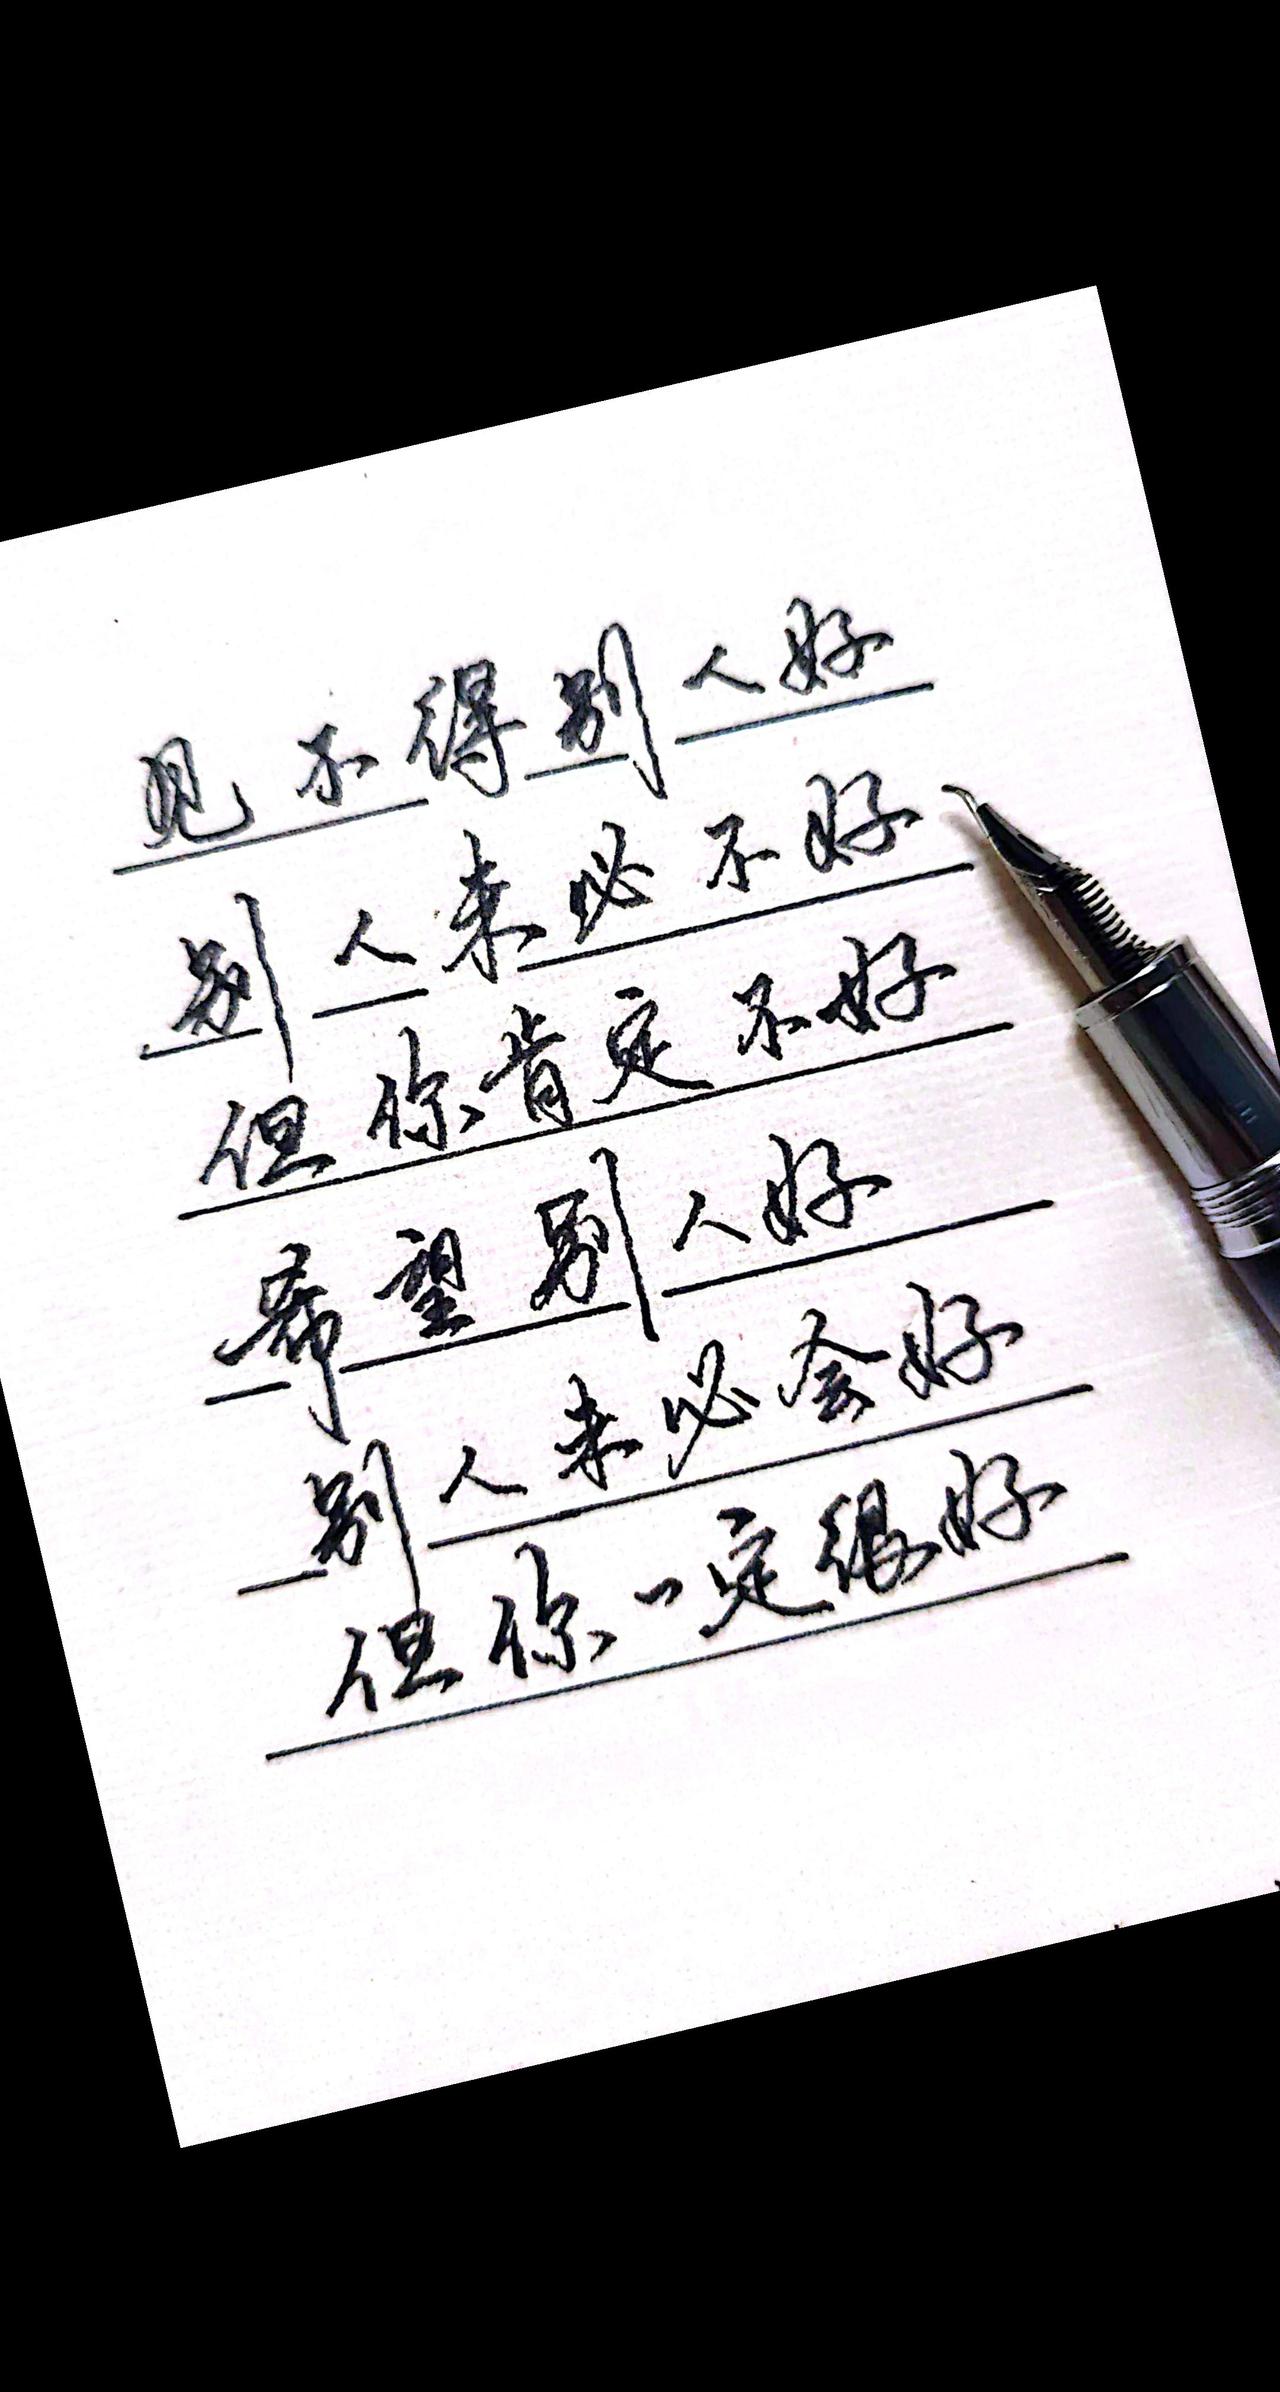 见不得别人好
别人未必不好
但你肯定不好
希望别人好
别人未必会好
但你一定很好